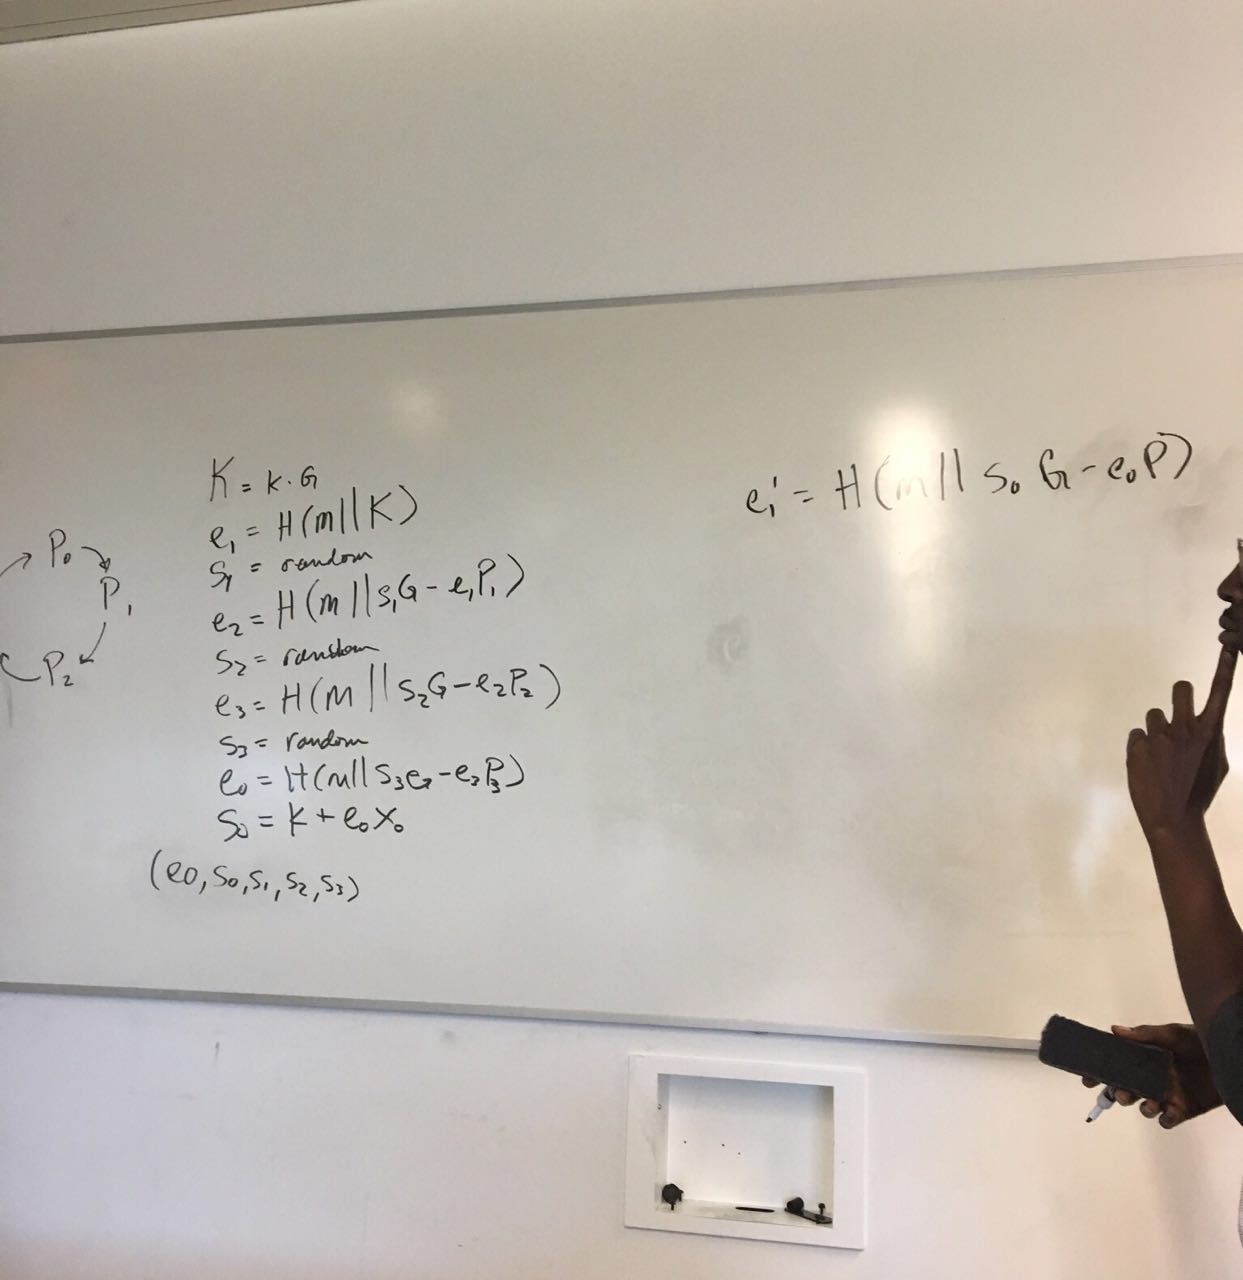 P₀
P₁
P₂
K = k · G
e₁ = H(m||K)
s₁ = random
e₂ = H(m||s₁G - e₁P₁)
s₂ = random
e₃ = H(m||s₂G - e₂P₂)
s₃ = random
e₀ = H(m||s₃G - e₃P₃)
s₀ = k + e₀x₀
(e₀, s₀, s₁, s₂, s₃)
e₁' = H(m||s₀G - e₀P)